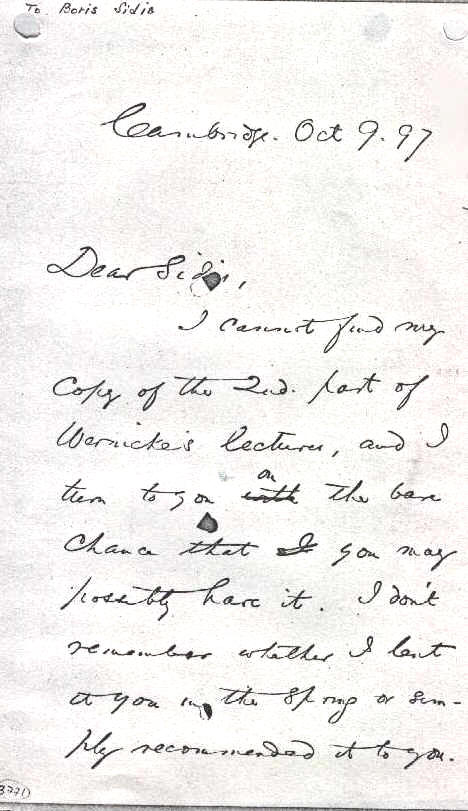 To Boris Sidis
Cambridge. Oct 9. 97
Dear Sidis,
I cannot find my
copy of the 2nd. part of
Wernicke's lectures, and I
on
turn to you with the bare
chance that I you may
possibly have it. I don't
remember whether I lent
it you in the Spring or sim-
ply recommended it to you.